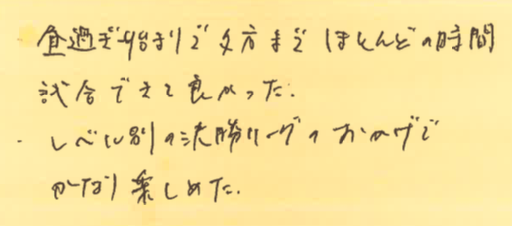 ・昼過ぎ始まりで夕方までほとんどの時間
試合できて良かった。
・レベル別の決勝リーグのおかげで
かなり楽しめた。